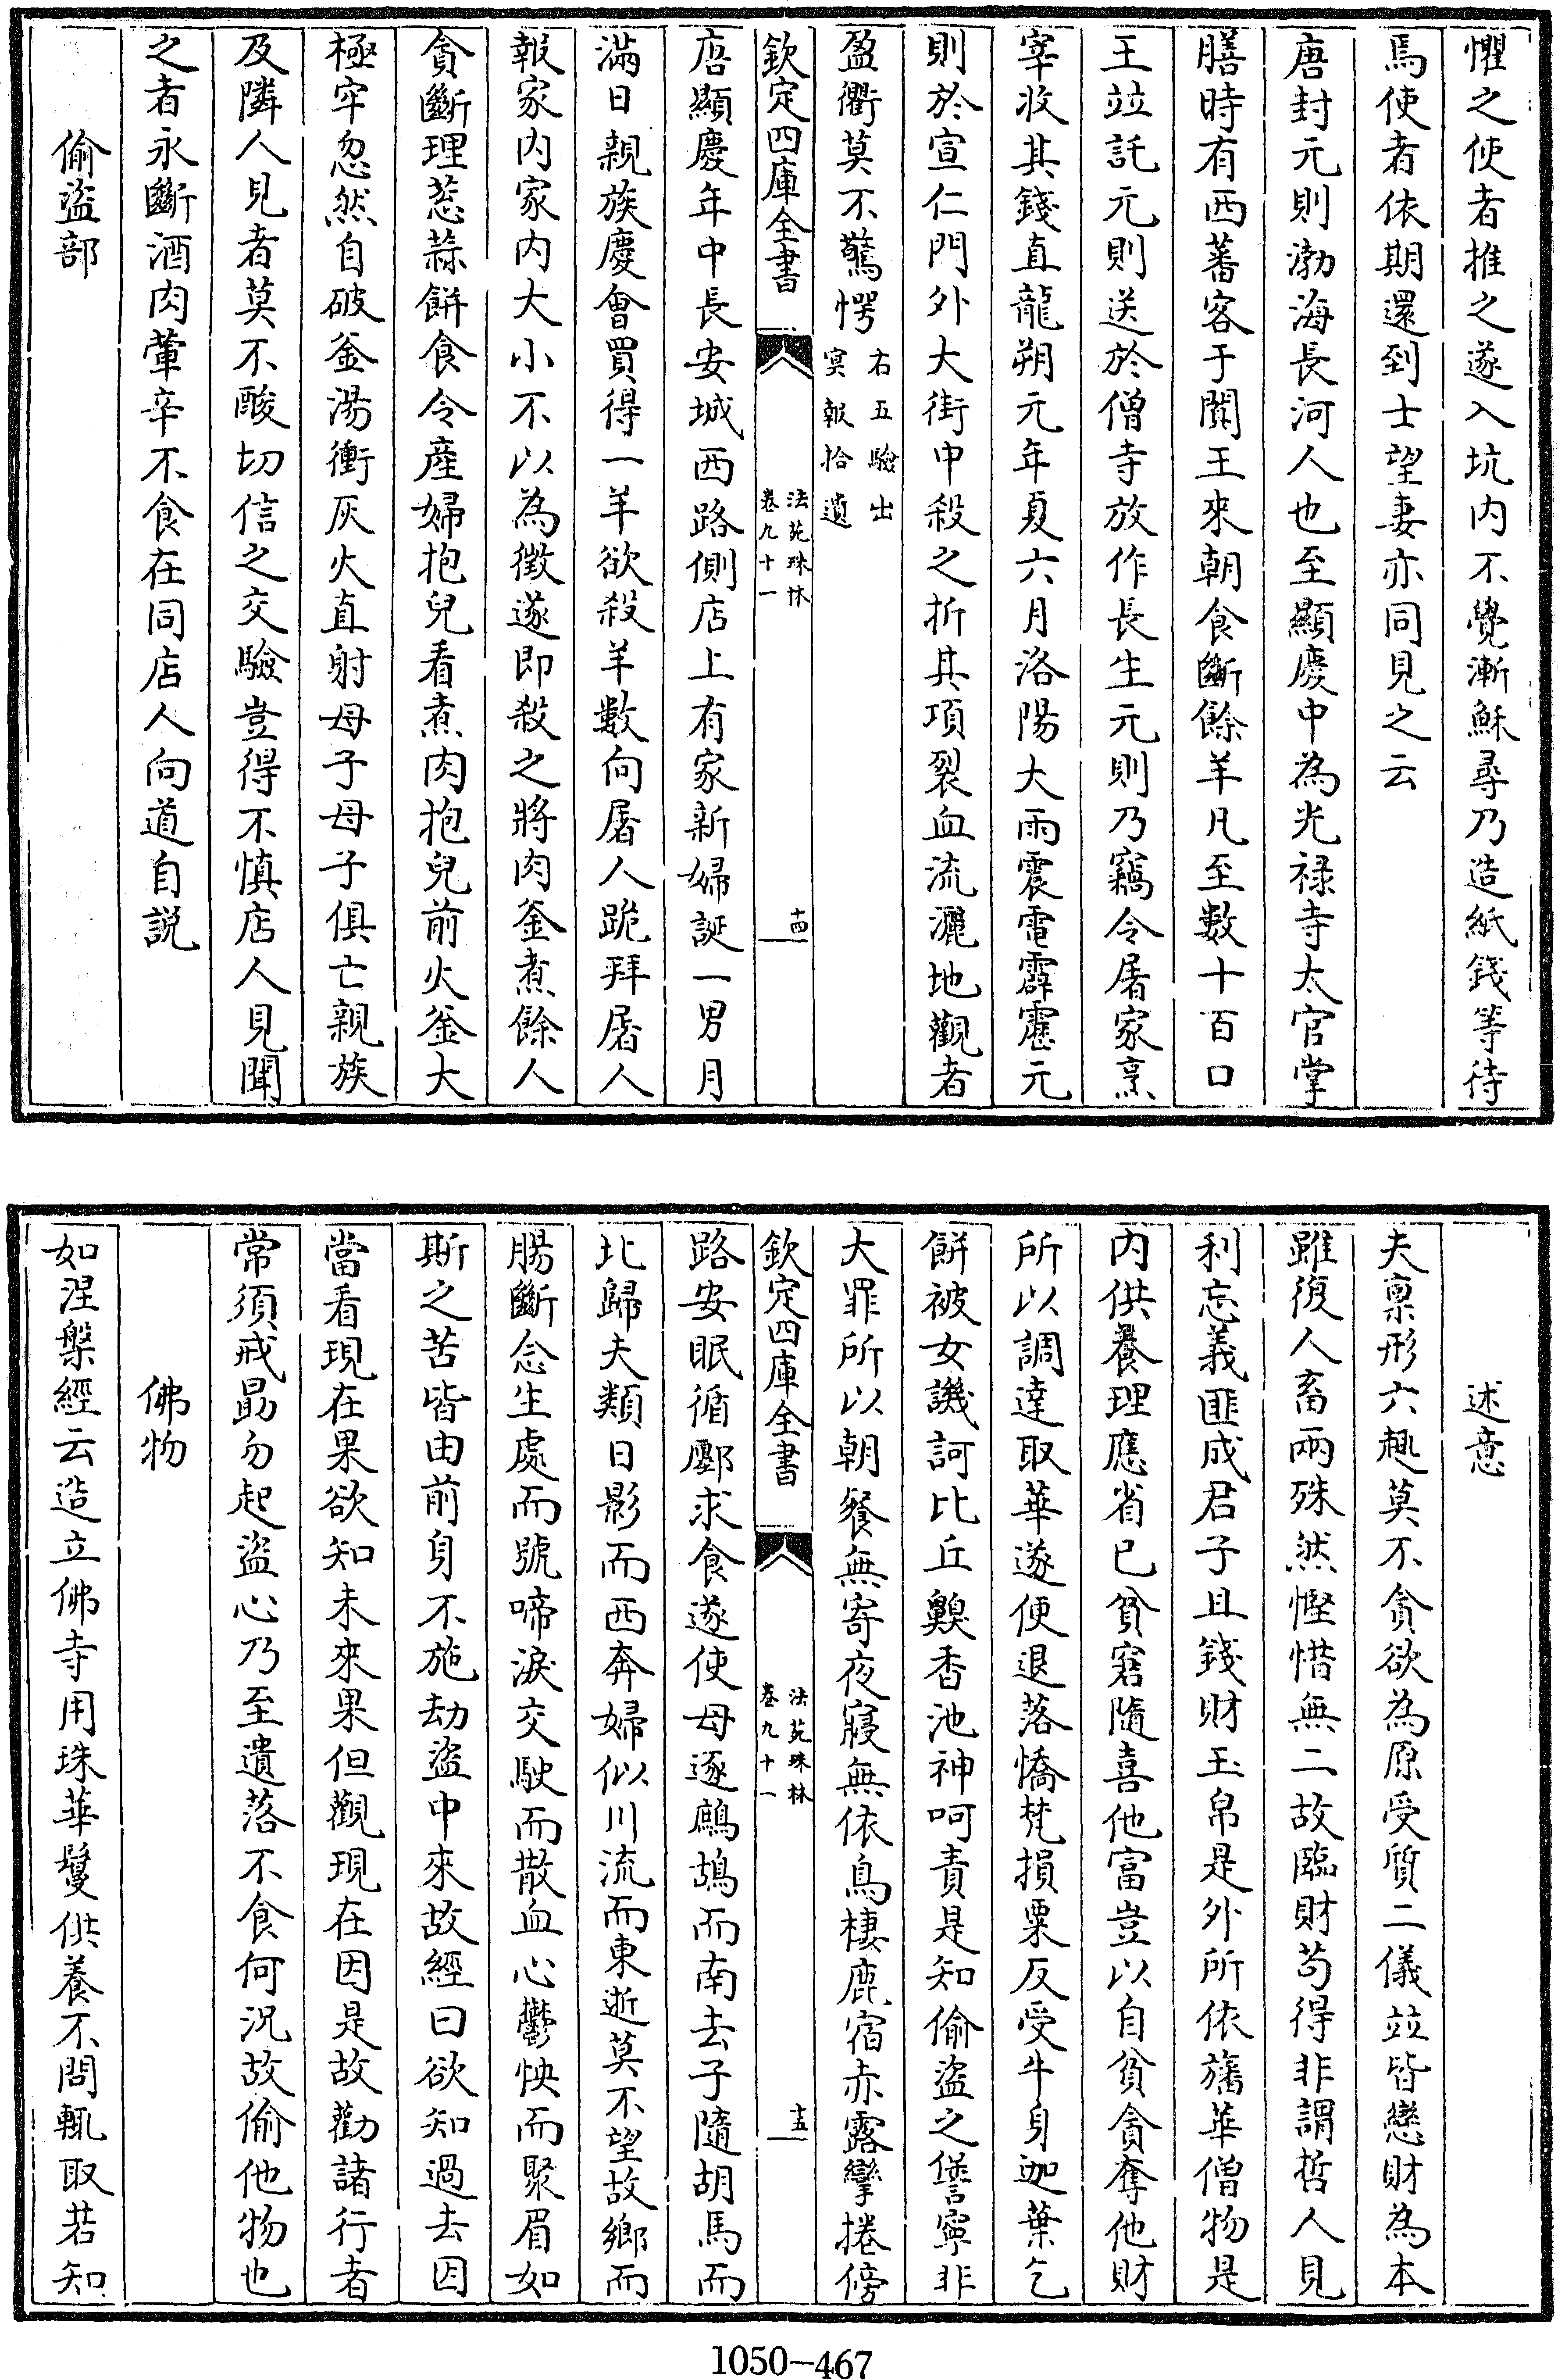 懼之使者推之遂入坑内不覺漸穌尋乃造紙錢等待
焉使者依期還到士望妻亦同見之云
唐封元則渤海長河人也至顯慶中為光禄寺太官掌
膳時有西蕃客于闐王來朝食斷餘羊凡至數十百口
王竝託元則送於僧寺放作長生元則乃竊令屠家烹
宰收其錢直龍朔元年夏六月洛陽大雨震電霹靂元
則於宣仁門外大街中殺之折其項裂血流灑地觀者
盈衢莫不驚愕右五驗出冥報拾遺
欽定四庫全書 法苑珠林卷九十一 十四
唐顯慶年中長安城西路側店上有家新婦誕一男月
滿日親族慶會買得一羊欲殺羊數向屠人跪拜屠人
報家内家内大小不以為徴遂即殺之將肉釜煮餘人
貪斷理葱蒜餅食令產婦抱兒看煮肉抱兒前火釜大
極牢忽然自破釜湯衝灰火直射母子母子俱亡親族
及隣人見者莫不酸切信之交驗豈得不慎店人見聞
之者永斷酒肉葷辛不食在同店人向道自説
偷盜部
述意
夫禀形六趣莫不貪欲為原受質二儀竝皆戀財為本
雖復人畜兩殊然慳惜無二故臨財茍得非謂哲人見
利忘義匪成君子且錢財玉帛是外所依旛華僧物是
内供養理應省已貧窘隨喜他富豈以自貧貪奪他財
所以調達取華遂便退落憍梵損粟反受牛身迦葉乞
餅被女譏訶比丘齅香池神呵責是知偷盜之愆寧非
大罪所以朝餐無寄夜寢無依鳥棲鹿宿赤露攣捲傍
欽定四庫全書 法苑珠林卷九十一 十五
路安眠循鄽求食遂使母逐鷓鴣而南去子隨胡馬而
北歸夫類日影而西奔婦似川流而東逝莫不望故鄉而
腸斷念生處而號啼淚交駛而散血心鬱怏而聚眉如
斯之苦皆由前身不施劫盜中來故經曰欲知過去因
當看現在果欲知未來果但觀現在因是故勸諸行者
常須戒勗勿起盜心乃至遺落不食何況故偷他物也
佛物
如涅槃經云造立佛寺用珠華鬘供養不問輒取若知
1050-467